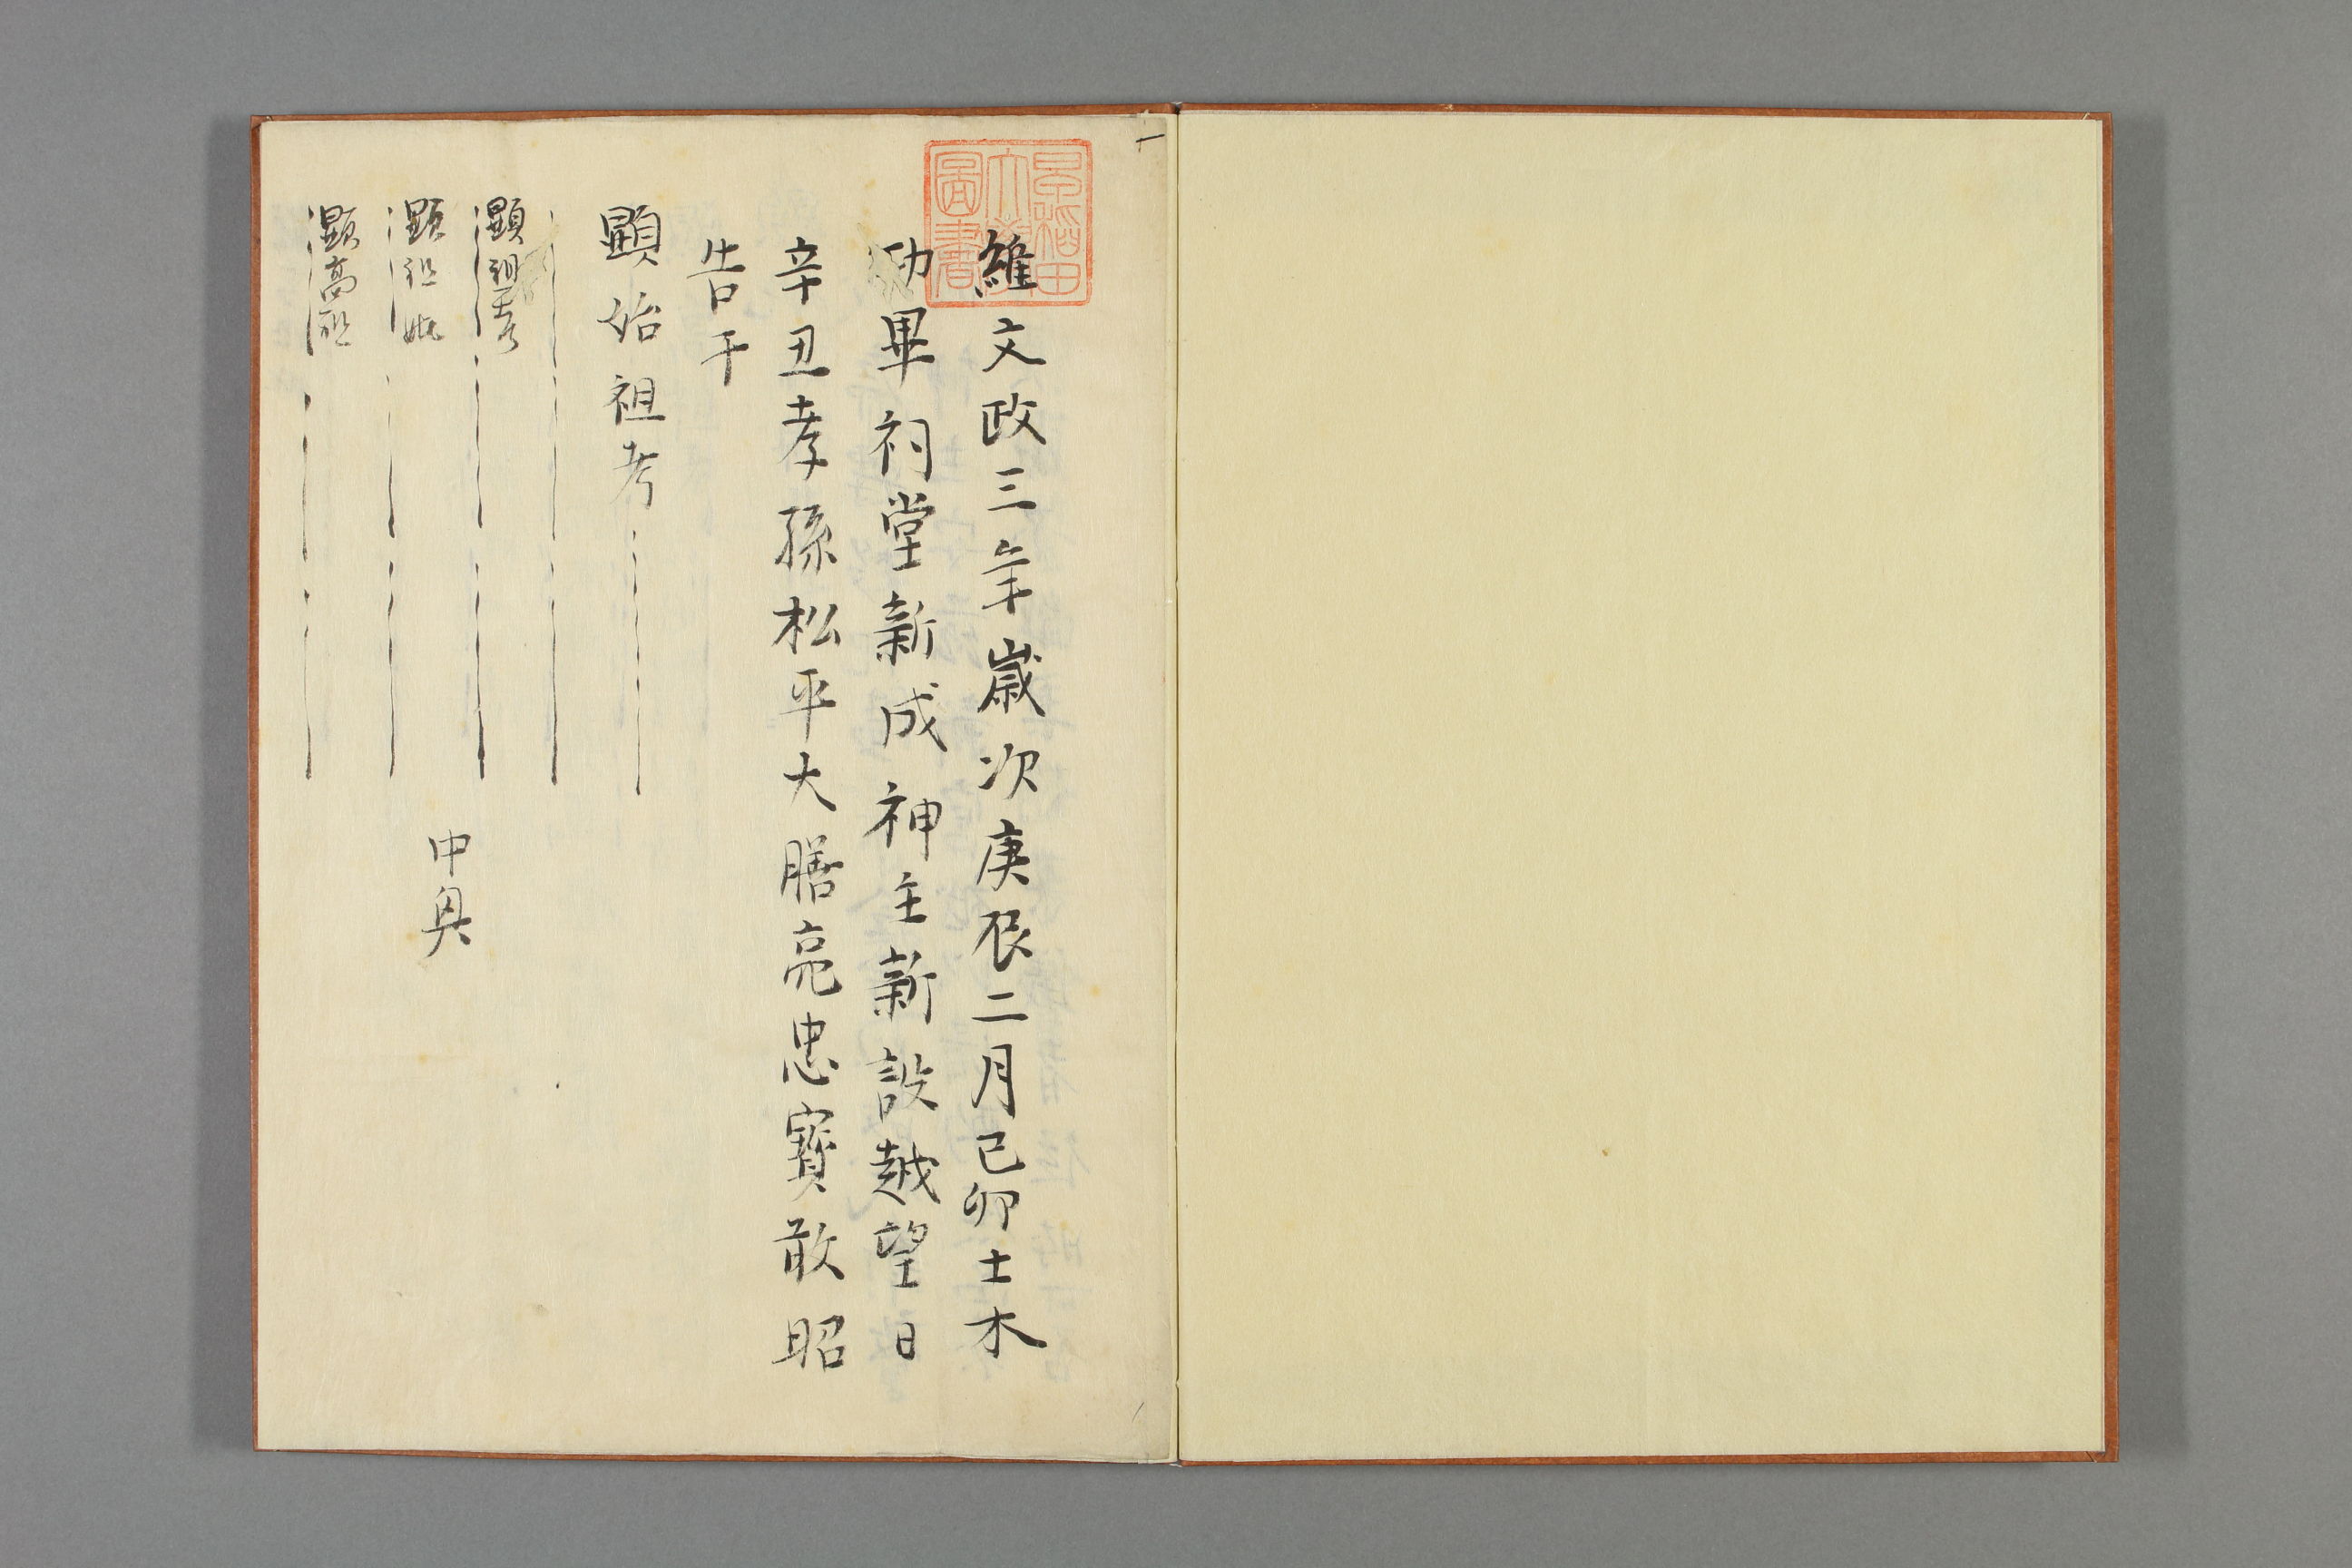 早稲田大學圖書
維文政三年歳次庚辰二月己卯土木
功畢祠堂新成神主新設越望日
辛丑孝孫松平大膳亮忠寳敢昭
告于
顕始祖考
顕祖考
顕祖妣
顕高祖
中奥